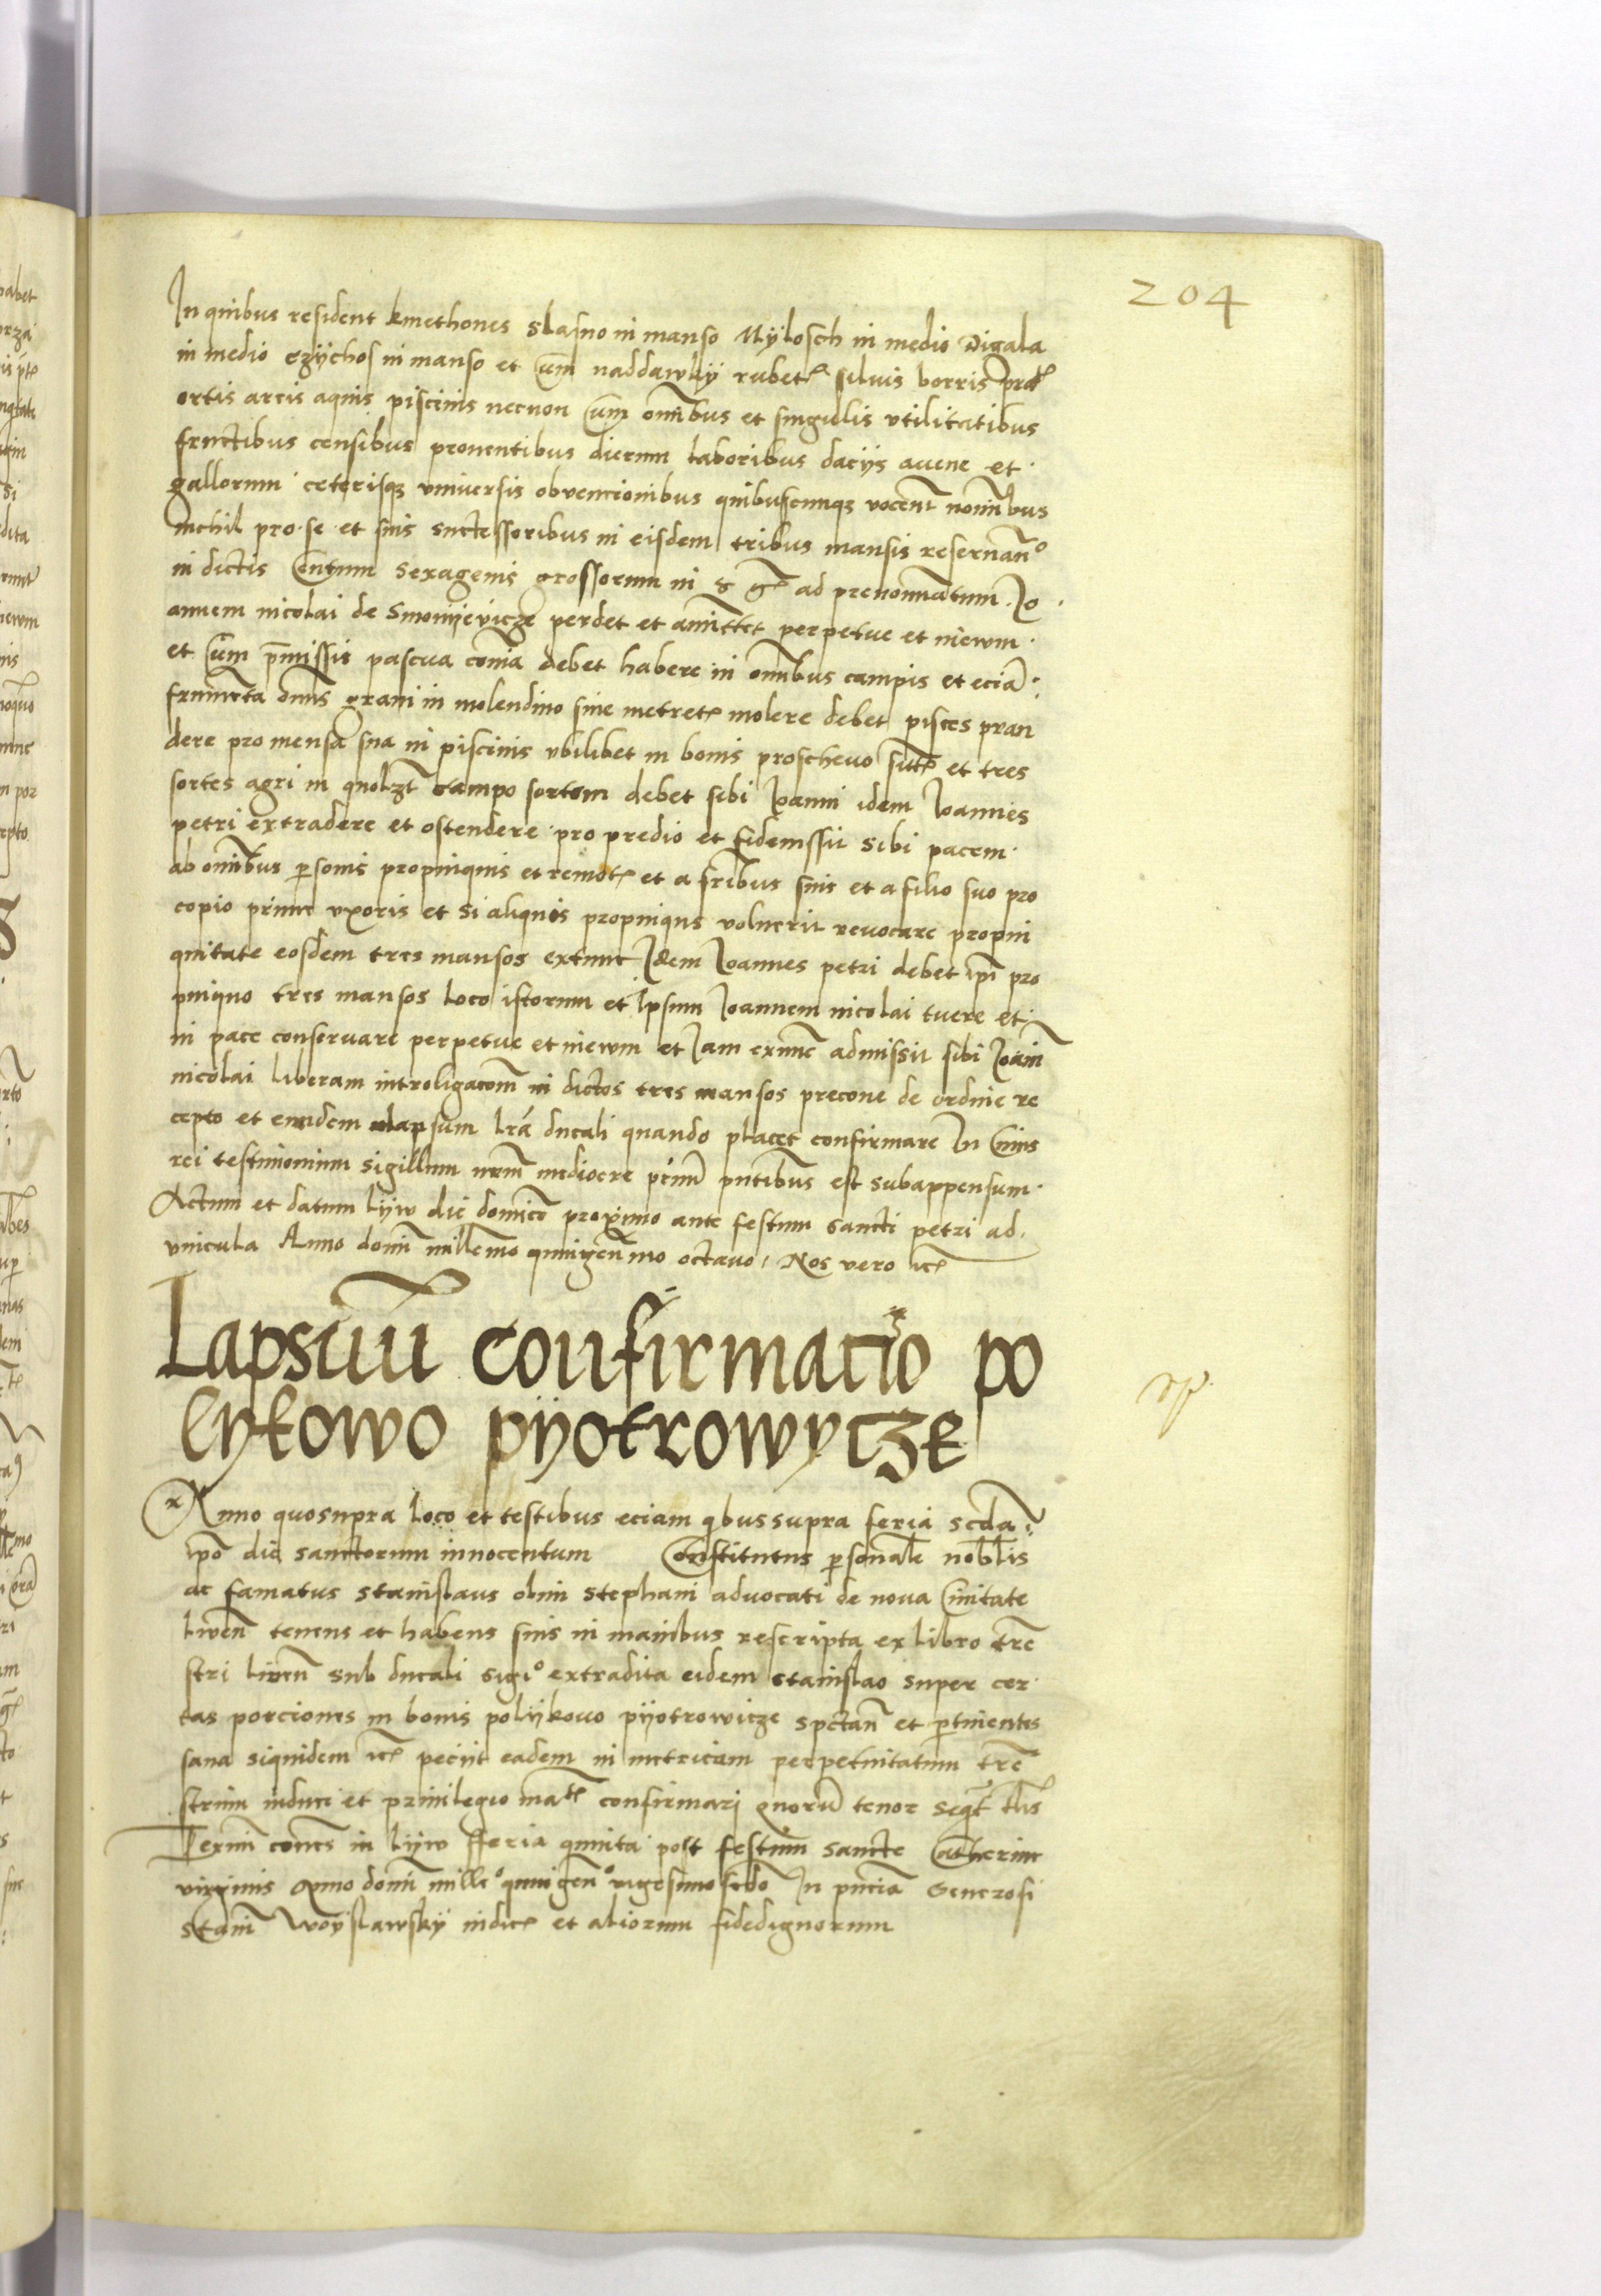 204
In quibus resident kmethones Slasno in manso Mÿlosch in medio Digala
in medio czÿchos in manso et cum naddawkÿ rubet silvis borris prat
ortis areis aquis piscinis necnon cum omibus et singulis utilitatibus
fructibus censibus proventibus dierum laboribus daciis avene et
gallorum ceterisque universis obvencionibus quibuscunque vocent nominibus
nichil pro se et suis successoribus in eisdem tribus mansis reservando
in dictis Centum sexagenis grossorum in ad prenominatum Jo
annem nicolai de Smonijevicze perdet et amittet perpetue et inewm
et cum pmissis pascua comia debet habere in omibus campis et ecia
frumenta omis grani in molendino sine metret molere debet pisces pran
dere pro mensa sua in piscinis ubilibet in bonis proschevo et tres
sortes agri in quolzt campo sortem debet sibi Joanni idem Joannes
petri extradere et ostendere pro predio et fidemssit sibi pacem
ab omibus psonis propinquis et remot et a fribus suis et a filio suo pro
copio prime uxoris et si aliquis propinquus voluerit revocare propin
quitate eosdem tres mansos extunc Idem Joannes petri debet ipi pro
pinquo tres mansos loco istorum et Ipsum Joannem nicolai tuere et
in pace conservare perpetue et inewm et Jam exnunc admissit sibi Joani
nicolai liberam introligacom in dictos tres mansos precone de ordine re
cepto et eundem lapsum lra ducali quando placet confirmare In Cuius
rei testimonium sigillum nrm mediocre pntibus est subappensum
Actum et datum lÿw die domico proximo ante festum sancti petri ad
vincula Anno domi millemo quingenmo octavo Nos vero etc
Lapsuum confirmatio po
lykowo pÿotrowycze
Anno quosupra loco et testibus eciam qbussupra feria scda i
ipo die sanctorum innocentum Constitutus psonale nobilis
ac famatus stanislaus olim stephani advocati de nova Civitate
liwen tenens et habens suis in manibus rescripta ex libro tre
stri liwen sub ducali sigio extradita eidem stanislao super cer
tas porciones in bonis polÿkovo pÿotrowicze spctan et ptinentes
sana siquidem etc peciit eadem in metricam perpetuitatum tre
strim induci et privilegio confirmari quorum tenor sequit tlis
Termi comes in lÿw feria quinta post festum sancte Catherine
virginis Anno domi mille quingen vigesimo scdo In pncia Generosi
Stani Woÿslawskÿ iudic et aliorum fidedignorum